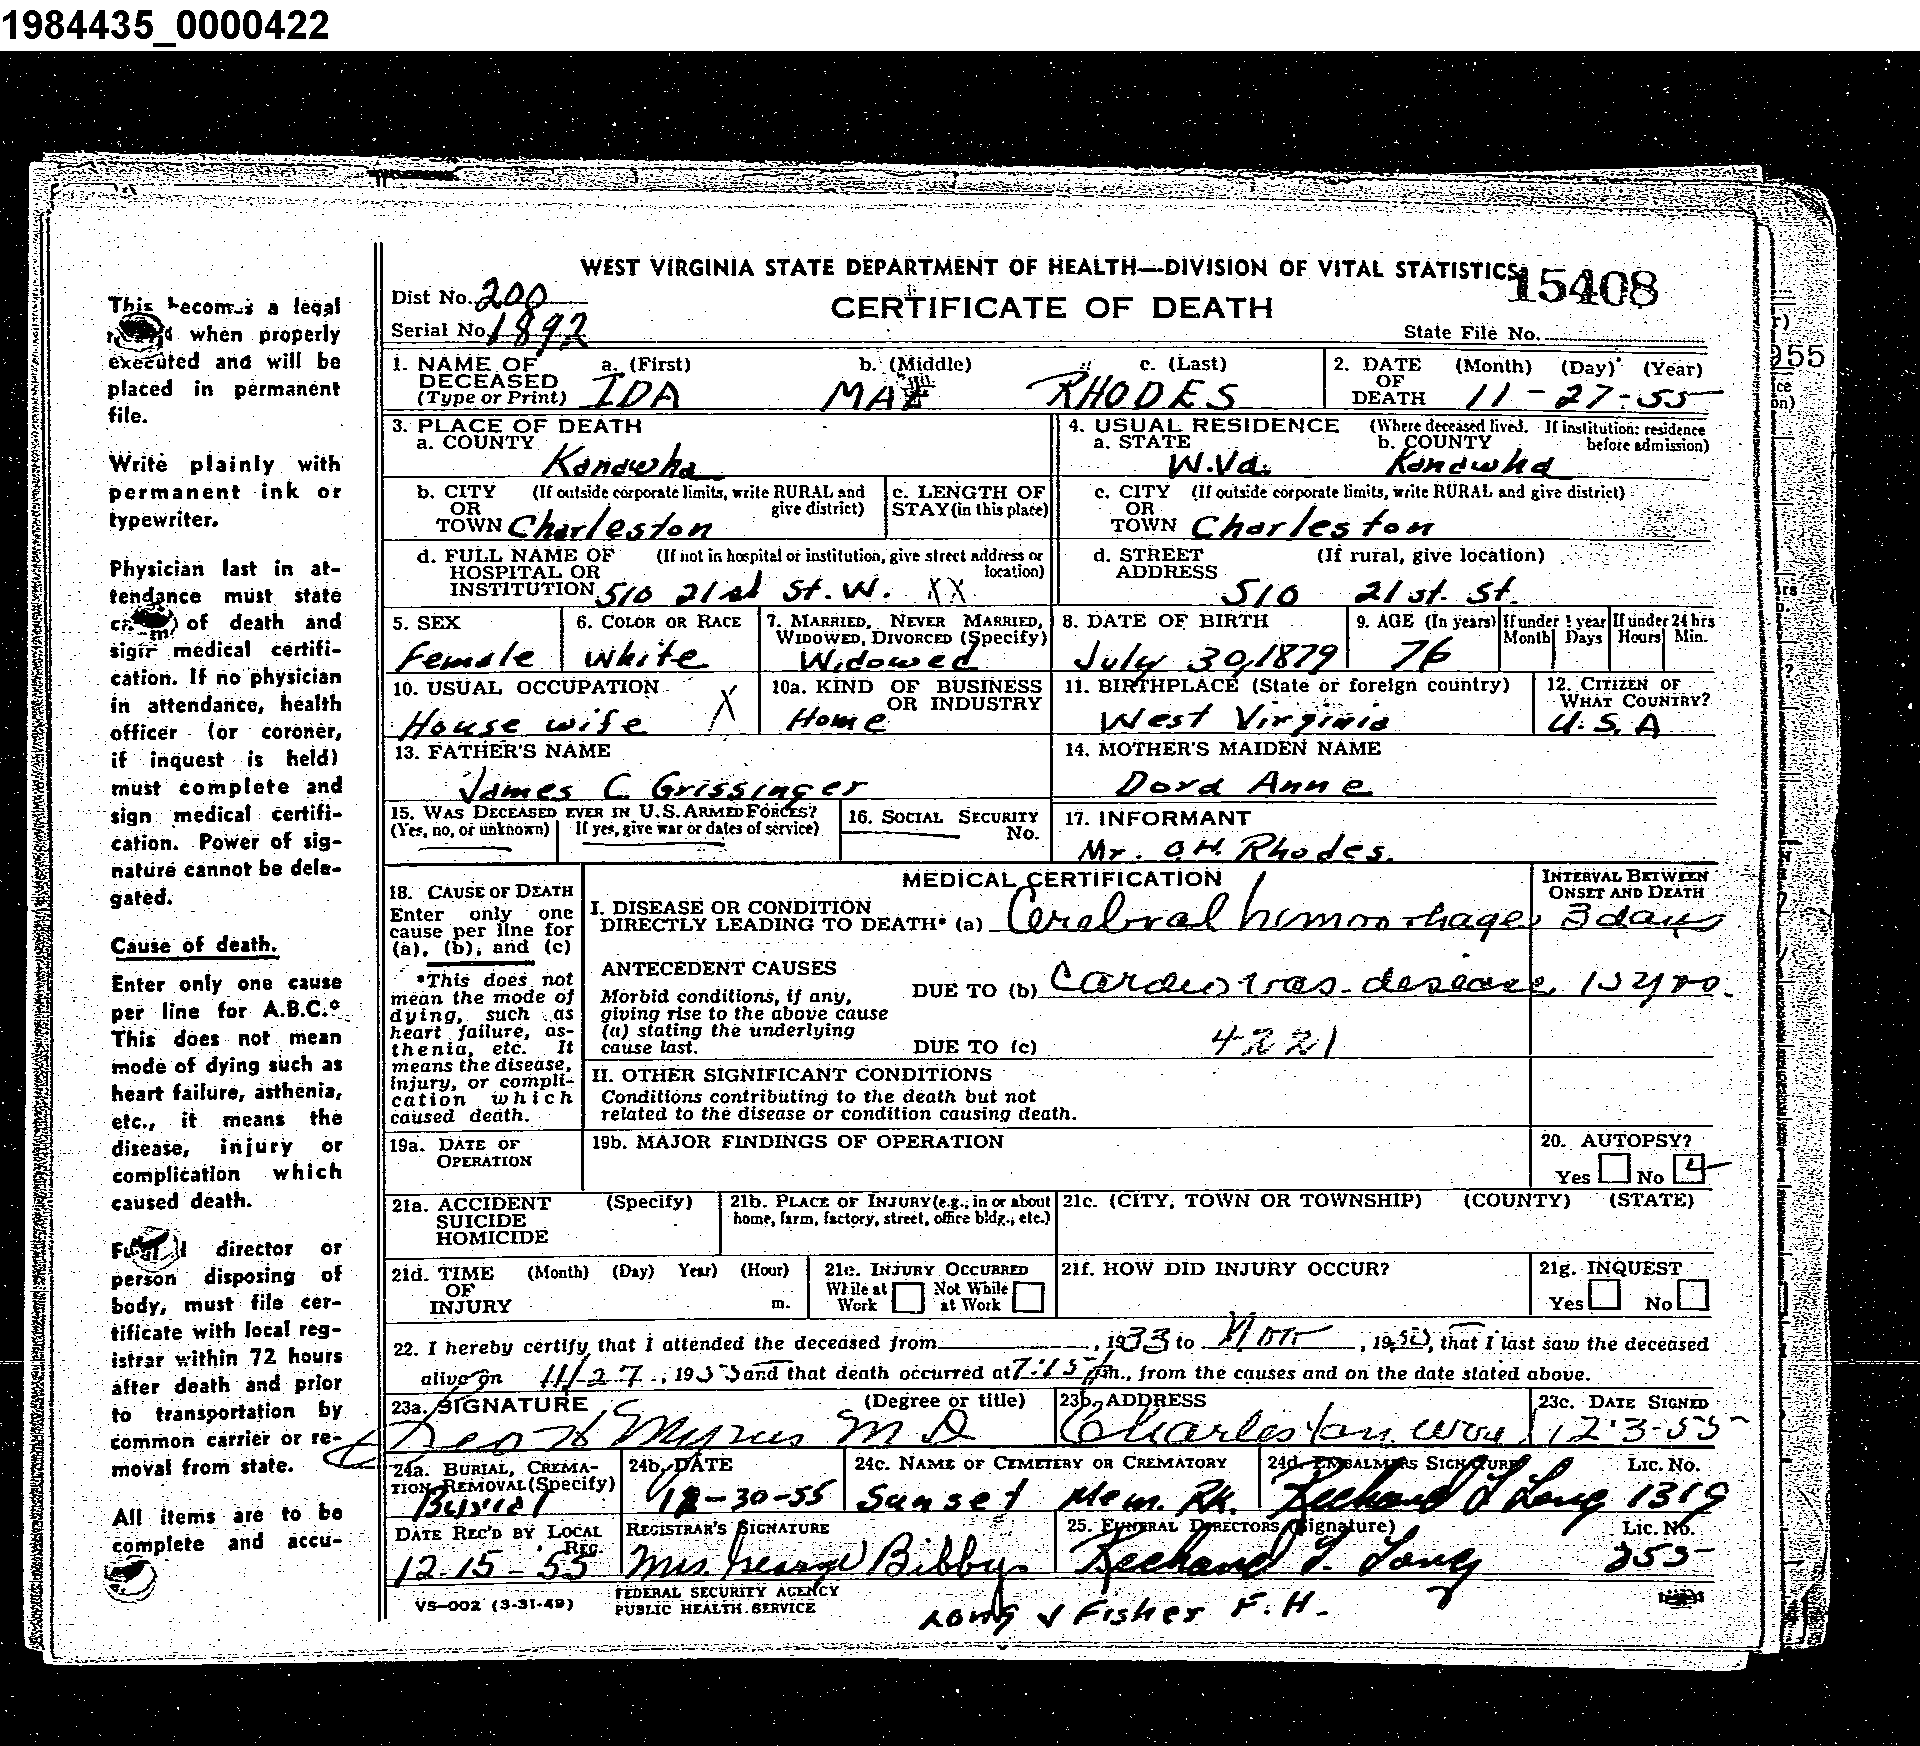 1984435_0000422
WEST VIRGINIA STATE DEPARTMENT OF HEALTH—DIVISION OF VITAL STATISTICS
15408
Dist No. 200
CERTIFICATE OF DEATH
Serial No. 1892
State File No.
1. NAME OF DECEASED (Type or Print) a. (First) b. (Middle) c. (Last)
IDA MAE RHODES
2. DATE OF DEATH (Month) (Day) (Year)
11-27-55
3. PLACE OF DEATH
a. COUNTY
Kanawha
4. USUAL RESIDENCE (Where deceased lived. If institution: residence before admission)
a. STATE b. COUNTY
W.Va. Kanawha
b. CITY OR TOWN (If outside corporate limits, write RURAL and give district)
Charleston
c. LENGTH OF STAY (in this place)
c. CITY OR TOWN (If outside corporate limits, write RURAL and give district)
Charleston
d. FULL NAME OF HOSPITAL OR INSTITUTION (If not in hospital or institution, give street address or location)
510 21st St. W. XX
d. STREET ADDRESS (If rural, give location)
510 21st. St.
5. SEX
Female
6. COLOR OR RACE
White
7. MARRIED, NEVER MARRIED, WIDOWED, DIVORCED (Specify)
Widowed
8. DATE OF BIRTH
July 30, 1879
9. AGE (In years)
76
If under 1 year
Month Days
If under 24 hrs
Hours Min.
10. USUAL OCCUPATION
House wife X
10a. KIND OF BUSINESS OR INDUSTRY
Home
11. BIRTHPLACE (State or foreign country)
West Virginia
12. CITIZEN OF WHAT COUNTRY?
U.S.A
13. FATHER'S NAME
James C Grissinger
14. MOTHER'S MAIDEN NAME
Dora Anne
15. WAS DECEASED EVER IN U.S. ARMED FORCES?
(Yes, no, or unknown) If yes, give war or dates of service)
16. SOCIAL SECURITY No.
17. INFORMANT
Mr. O.H. Rhodes.
18. CAUSE OF DEATH
Enter only one cause per line for (a), (b), and (c)
*This does not mean the mode of dying, such as heart failure, asthenia, etc. It means the disease, injury, or complication which caused death.
MEDICAL CERTIFICATION
INTERVAL BETWEEN ONSET AND DEATH
I. DISEASE OR CONDITION DIRECTLY LEADING TO DEATH* (a) Cerebral hemorrhage 3 days
ANTECEDENT CAUSES
Morbid conditions, if any, giving rise to the above cause (a) stating the underlying cause last.
DUE TO (b) Cardio vas. desease 15 yrs.
DUE TO (c) 4221
II. OTHER SIGNIFICANT CONDITIONS
Conditions contributing to the death but not related to the disease or condition causing death.
19a. DATE OF OPERATION
19b. MAJOR FINDINGS OF OPERATION
20. AUTOPSY?
Yes No
21a. ACCIDENT SUICIDE HOMICIDE (Specify)
21b. PLACE OF INJURY (e.g., in or about home, farm, factory, street, office bldg., etc.)
21c. (CITY, TOWN OR TOWNSHIP) (COUNTY) (STATE)
21d. TIME OF INJURY (Month) (Day) Year) (Hour) m.
21e. INJURY OCCURRED
While at Work Not While at Work
21f. HOW DID INJURY OCCUR?
21g. INQUEST
Yes No
22. I hereby certify that I attended the deceased from , 1933 to Nov , 19 , that I last saw the deceased
alive on 11/-27, 1955 and that death occurred at 7:15 m., from the causes and on the date stated above.
23a. SIGNATURE (Degree or title)
M D
23b. ADDRESS
Charleston
23c. DATE SIGNED
12-3-55
24a. BURIAL, CREMATION, REMOVAL (Specify)
Burial
24b. DATE
-30-55
24c. NAME OF CEMETERY OR CREMATORY
Sunset Mem. Pk.
24d. EMBALMERS SIGNATURE LIC. NO.
Long 1319
DATE REC'D BY LOCAL REG.
12-15-55
REGISTRAR'S SIGNATURE
Mrs. George Bibby
25. FUNERAL DIRECTORS (Signature) LIC. NO.
Long
VS-002 (3-31-49)
FEDERAL SECURITY AGENCY
PUBLIC HEALTH SERVICE
Long & Fisher F.H.
This becomes a legal
when properly
executed and will be
placed in permanent
file.
Write plainly with
permanent ink or
typewriter.
Physician last in at-
tendance must state
of death and
sign medical certifi-
cation. If no physician
in attendance, health
officer (or coroner,
if inquest is held)
must complete and
sign medical certifi-
cation. Power of sig-
nature cannot be dele-
gated.
Cause of death.
Enter only one cause
per line for A.B.C.*
This does not mean
mode of dying such as
heart failure, asthenia,
etc., it means the
disease, injury or
complication which
caused death.
Funeral director or
person disposing of
body, must file cer-
tificate with local reg-
istrar within 72 hours
after death and prior
to transportation by
common carrier or re-
moval from state.
All items are to be
complete and accu-